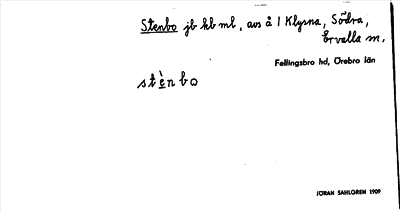 Stenbo jb kb ml, avs å 1 Klysna, Södra,
Ervalla sn.
Fellingsbro hd, Örebro län
stènbo
JÖRAN SAHLGREN 1909